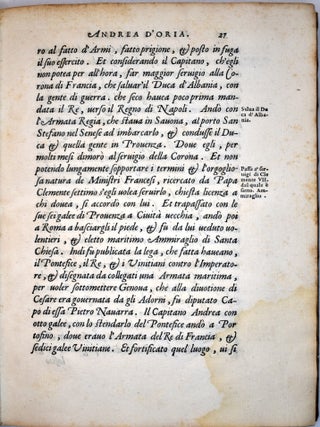 ANDREA D'ORIA. 27
ro al fatto d'Armi, fatto prigione, & posto in fuga
il suo essercito. Et considerando il Capitano, ch'egli
non potea per all'hora, far maggior seruigio alla Co
rona di Francia, che saluar'il Duca d'Albania, con
la gente di guerra. che seco hauea poco prima man
data il Re, uerso il Regno di Napoli. Ando con
l'Armata Regia, che staua in Sauona, al porto San
Stefano nel Senese ad imbarcarlo, & condusse il Du
ca & quella gente in Prouenza. Doue egli, per
molti mesi dimorò al seruigio della Corona. Et non
potendo lungamente sopportare i termini & l'orgoglio
sa natura de Ministri Francesi, ricercato da Papa
Clemente settimo s'egli uolea seruirlo, chiesta licenza a
chi douea, si accordo con lui. Et trapassato con le
sue sei galee di Prouenza a Ciuità uecchia, andò poi
a Roma a basciargli il piede, & fu da lui ueduto uo-
lentieri, & eletto maritimo Ammiraglio di Santa
Chiesa. Indi fu publicata la lega, che fatta haueano,
il Pontefice, il Re, & i Vinitiani contro l'Imperato-
re, & disegnata da collegati una Armata maritima,
per uoler sottomettere Genoua, che alla diuotione di
Cesare era gouernata da gli Adorni, fu diputato Ca-
po di essa Pietro Nauarra. Il Capitano Andrea con
otto galee, con lo stendardo del Pontefice andò a Por
tofino, doue erauo l'Armata del Re di Francia, &
sedici galee Vinitiane. Et fortificato quel luogo, ui si
Salua il Du
ca d'Alba-
nia.
Passa a' ser
uigi di Cle
mente VII.
dal quale è
fatto Am-
miraglio.